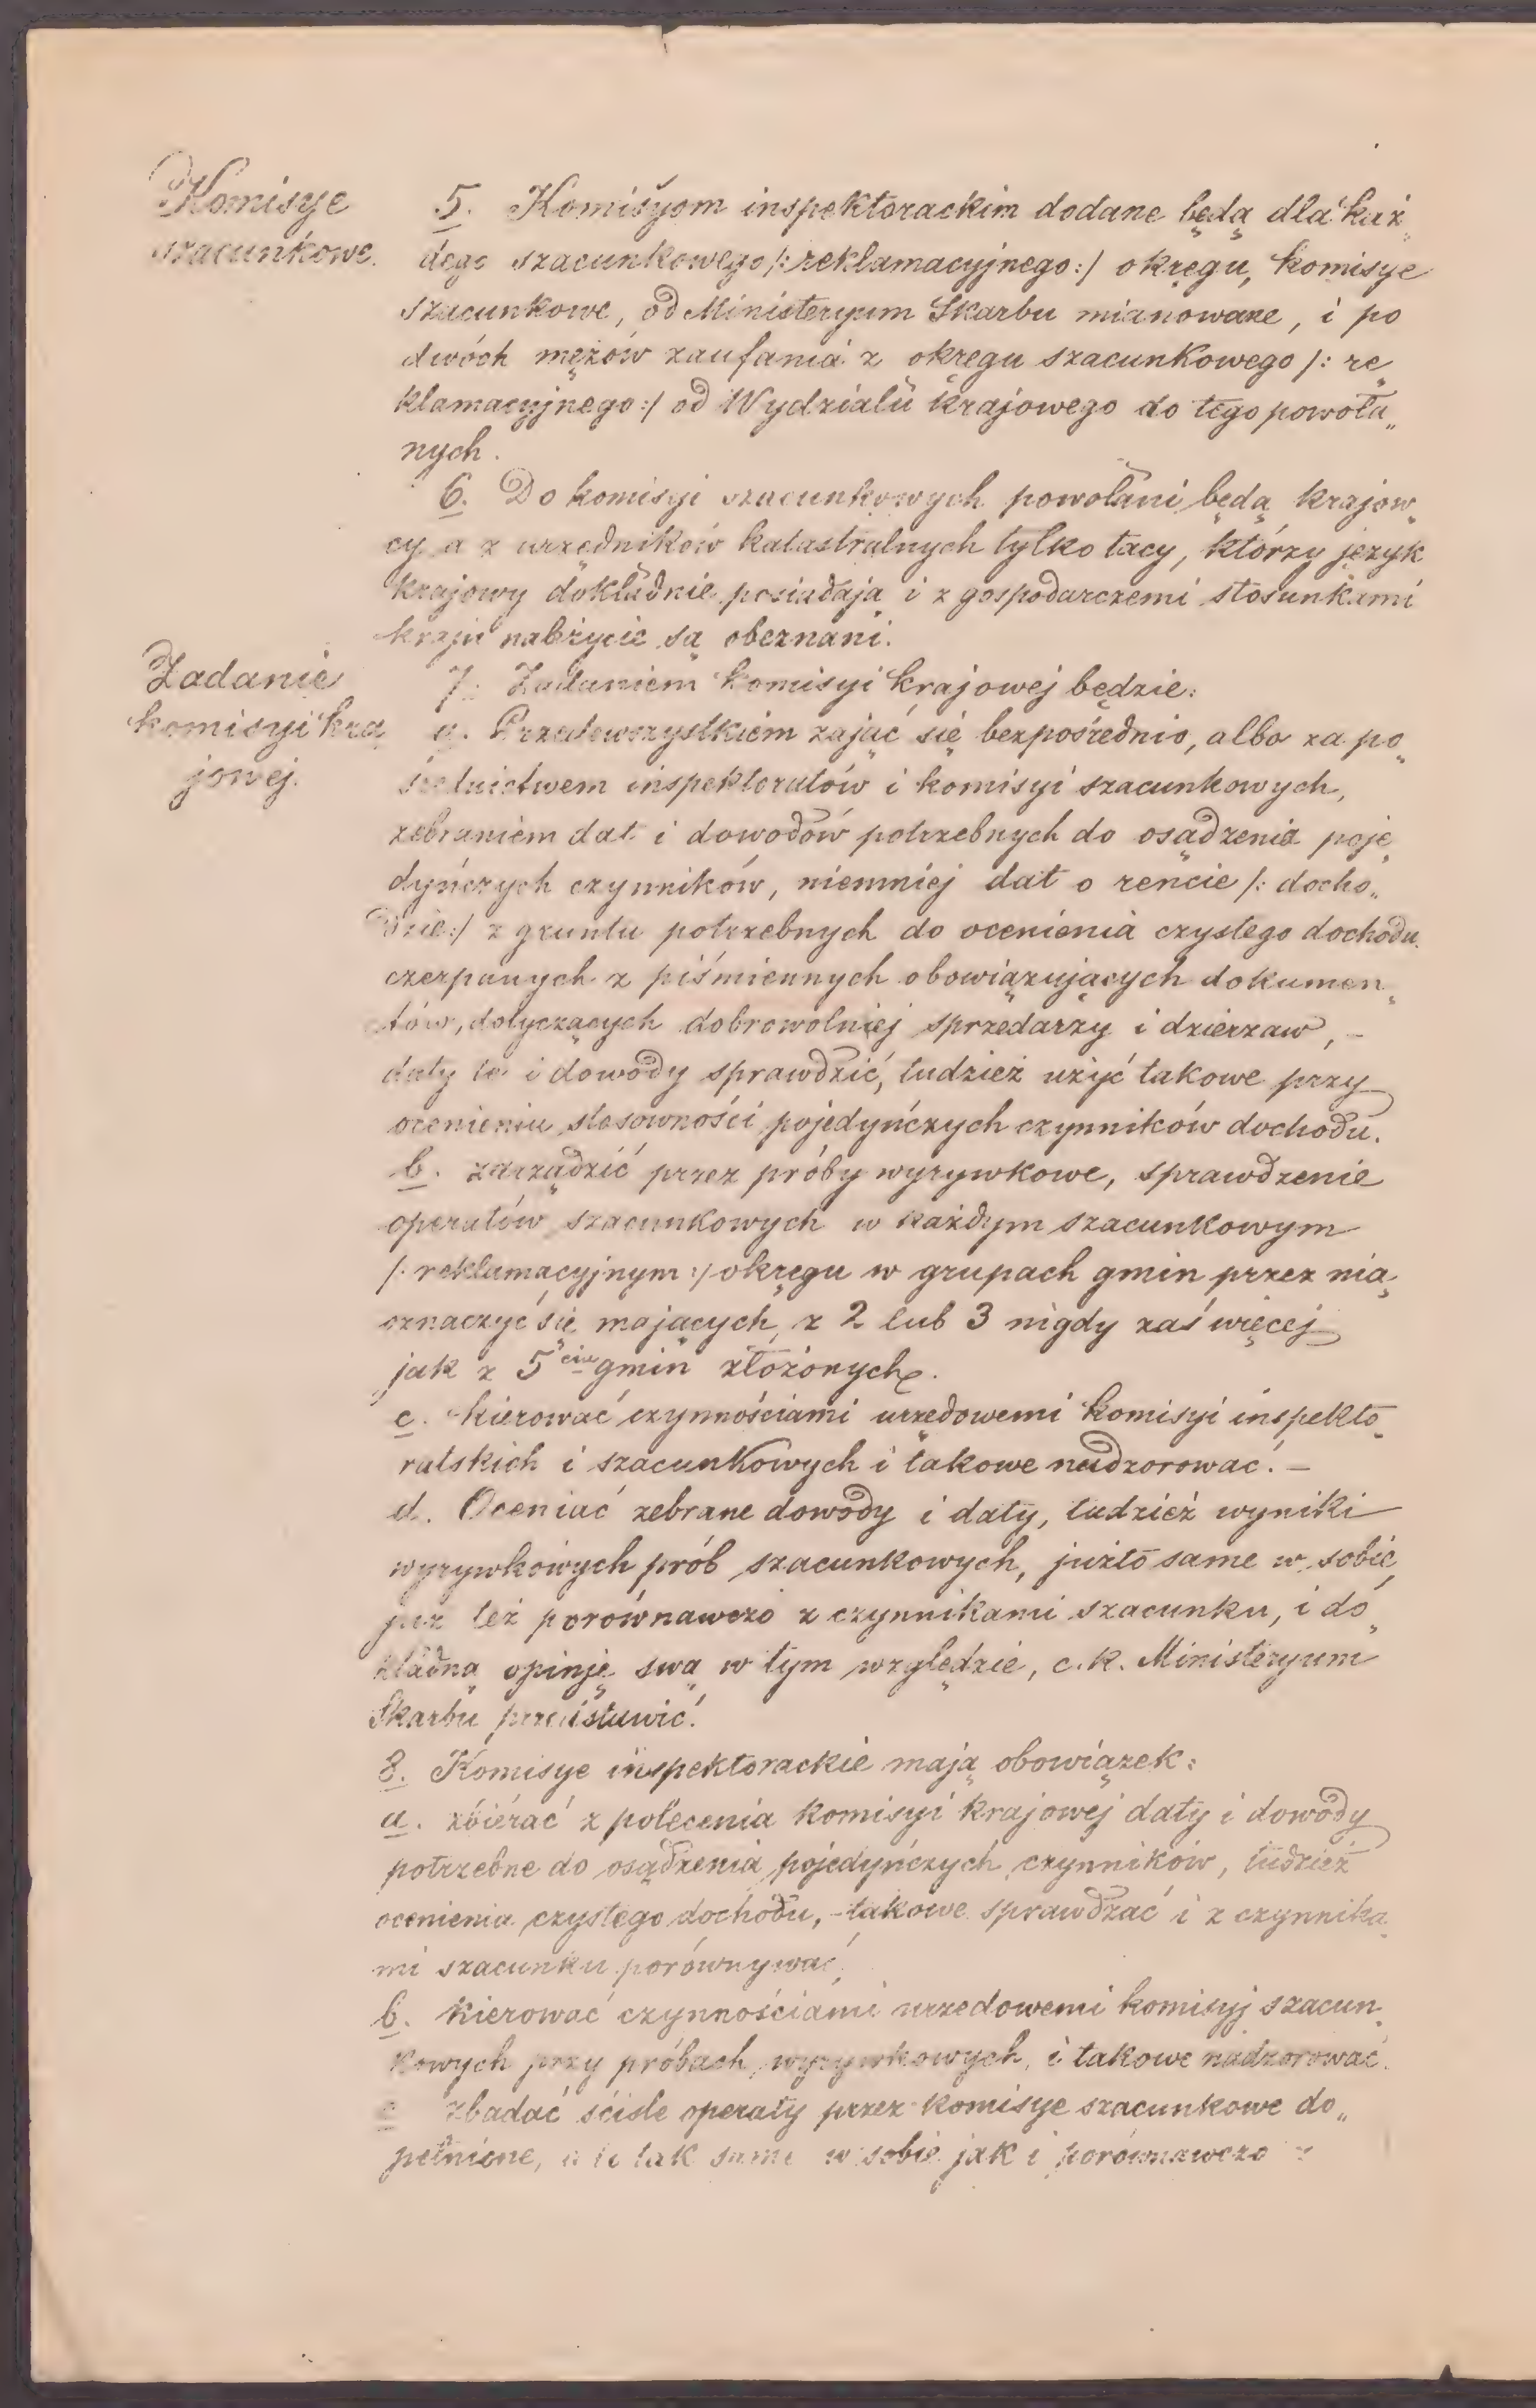 Komisye
szacunkowe.
5. Komisyom inspektorackim dodane będą dla każ„
dego szacunkowego /: reklamacyjnego :/ okręgu, komisye
szacunkowe, od Ministeryum Skarbu mianowane, i po
dwóch mężów zaufania z okręgu szacunkowego /: re„
klamacyjnego :/ od Wydziału krajowego do tego powoła„
nych.
6. Do komisyi szacunkowych powołani będą krajow„
cy a z urzędników katastralnych tylko tacy, którzy język
krajowy dokładnie posiadają i z gospodarczemi stosunkami
kraju należycie są obeznani.
Zadanie
komisyi kra„
jowej.
7. Zadaniem komisyi krajowej będzie:
a. Przedewszystkiem zająć się bezpośrednio, albo za po„
średnictwem inspektoratów i komisyi szacunkowych,
zebraniem dat i dowodów potrzebnych do osądzenia poje„
dyńczych czynników, niemniej dat o rencie /: docho„
dzie :/ z gruntu potrzebnych do ocenienia czystego dochodu
czerpanych z piśmiennych obowiązujących dokumen„
tów, dotyczących dobrowolniej sprzedarzy i dzierzaw, –
daty te i dowody sprawdzić, tudzież użyć takowe przy
ocenieniu stosowności pojedyńczych czynników dochodu.
b. zarządzić przez próby wyrywkowe, sprawdzenie
operatów szacunkowych w każdym szacunkowym
/: reklamacyjnym :/ okręgu w grupach gmin przez nią
oznaczyć się mających z 2 lub 3 nigdy zaś więcej
jak z 5ciu gmin złożonych.
c. kierować czynnościami urzędowemi komisyi inspekto„
ratskich i szacunkowych i takowe nadzorować. –
d. Oceniać zebrane dowody i daty, tudzież wyniki
wyrywkowych prób szacunkowych, już to same w sobie,
już też porównawczo z czynnikami szacunku, i do„
kładną opinję swą w tym względzie, c. k. Ministeryum
Skarbu przedstawić.
8. Komisye inspektorackie mają obowiązek:
a. zbierać z polecenia komisyi krajowej daty i dowody
potrzebne do osądzenia pojedyńczych czynników, tudzież
ocenienia czystego dochodu, – takowe sprawdzać i z czynnika„
mi szacunku porównywać,
b. kierować czynnościami urzedowemi komisyj szacun„
kowych przy próbach wyrywkowych, i takowe nadzorować.
c zbadać ściśle operaty przez komisye szacunkowe do„
pełnione, a to tak same w sobie jak i porównawczo z